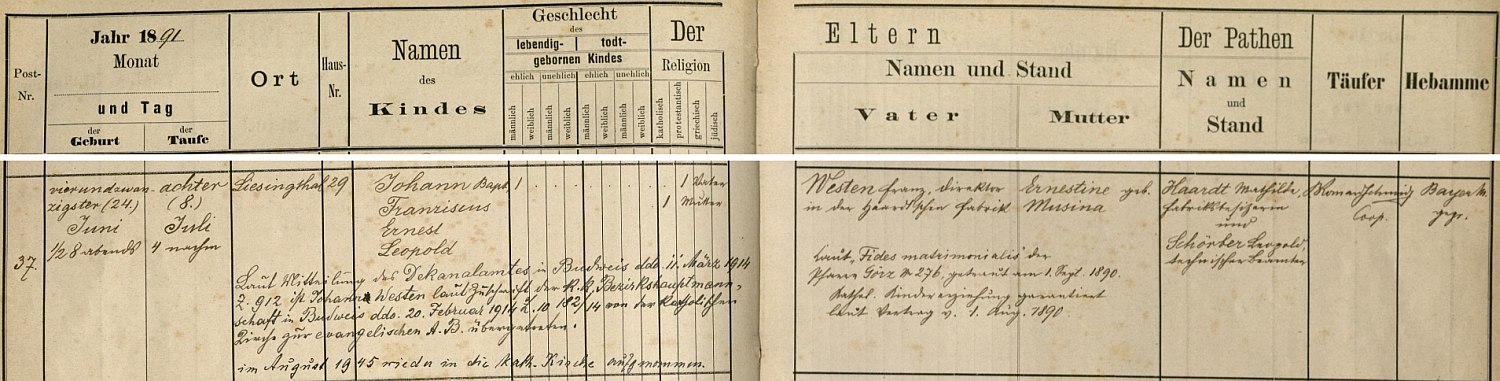 Post-
Nr.
Jahr 1891
Monat
und Tag
der
Geburt
der
Taufe
Ort
Haus-
Nr.
Namen
des
Kindes
Geschlecht
des
lebendig- | todt-
gebornen Kindes
ehlich unehlich ehlich unehlich
männlich weiblich männlich weiblich männlich weiblich männlich weiblich
Der
Religion
katholisch protestantisch griechisch jüdisch
Eltern
Namen und Stand
Vater
Mutter
Der Pathen
Namen
und
Stand
Täufer
Hebamme
37.
vierundzwan-
zigster (24.)
Juni
1/2 8 abends
achter
(8.)
Juli
4 nachm
Liesingthal 29
Johann Bapt.
Franziscus
Ernest
Leopold
1 1 Vater
1 Mutter
Laut Mitteilung des Dekanalamtes in Budweis ddo. 11. März 1914
Z. 912 ist Johann Westen laut Zuschrift der k.k. Bezirkshauptmann-
schaft in Budweis ddo. 20. Februar 1914 Z. 10.182/14 von der katholischen
Kirche zur evangelischen A.B. übergetreten.
im August 1945 wieder in die kath. Kirche aufgenommen.
Westen Franz, Direktor
in der Haardt'schen Fabrik
Ernestine geb.
Musina
Laut Fides matrimonialis der
Pfarre Görz № 276, getraut am 1. Sept. 1890.
Kathol. Kindererziehung garantiert
laut Vertrag v. 1. Aug. 1890.
Haardt Mathilde,
Fabriksbesitzerin
und
Schörber Leopold,
technischer Beamter
Roman
Coop.
Bayer M.
gepr.